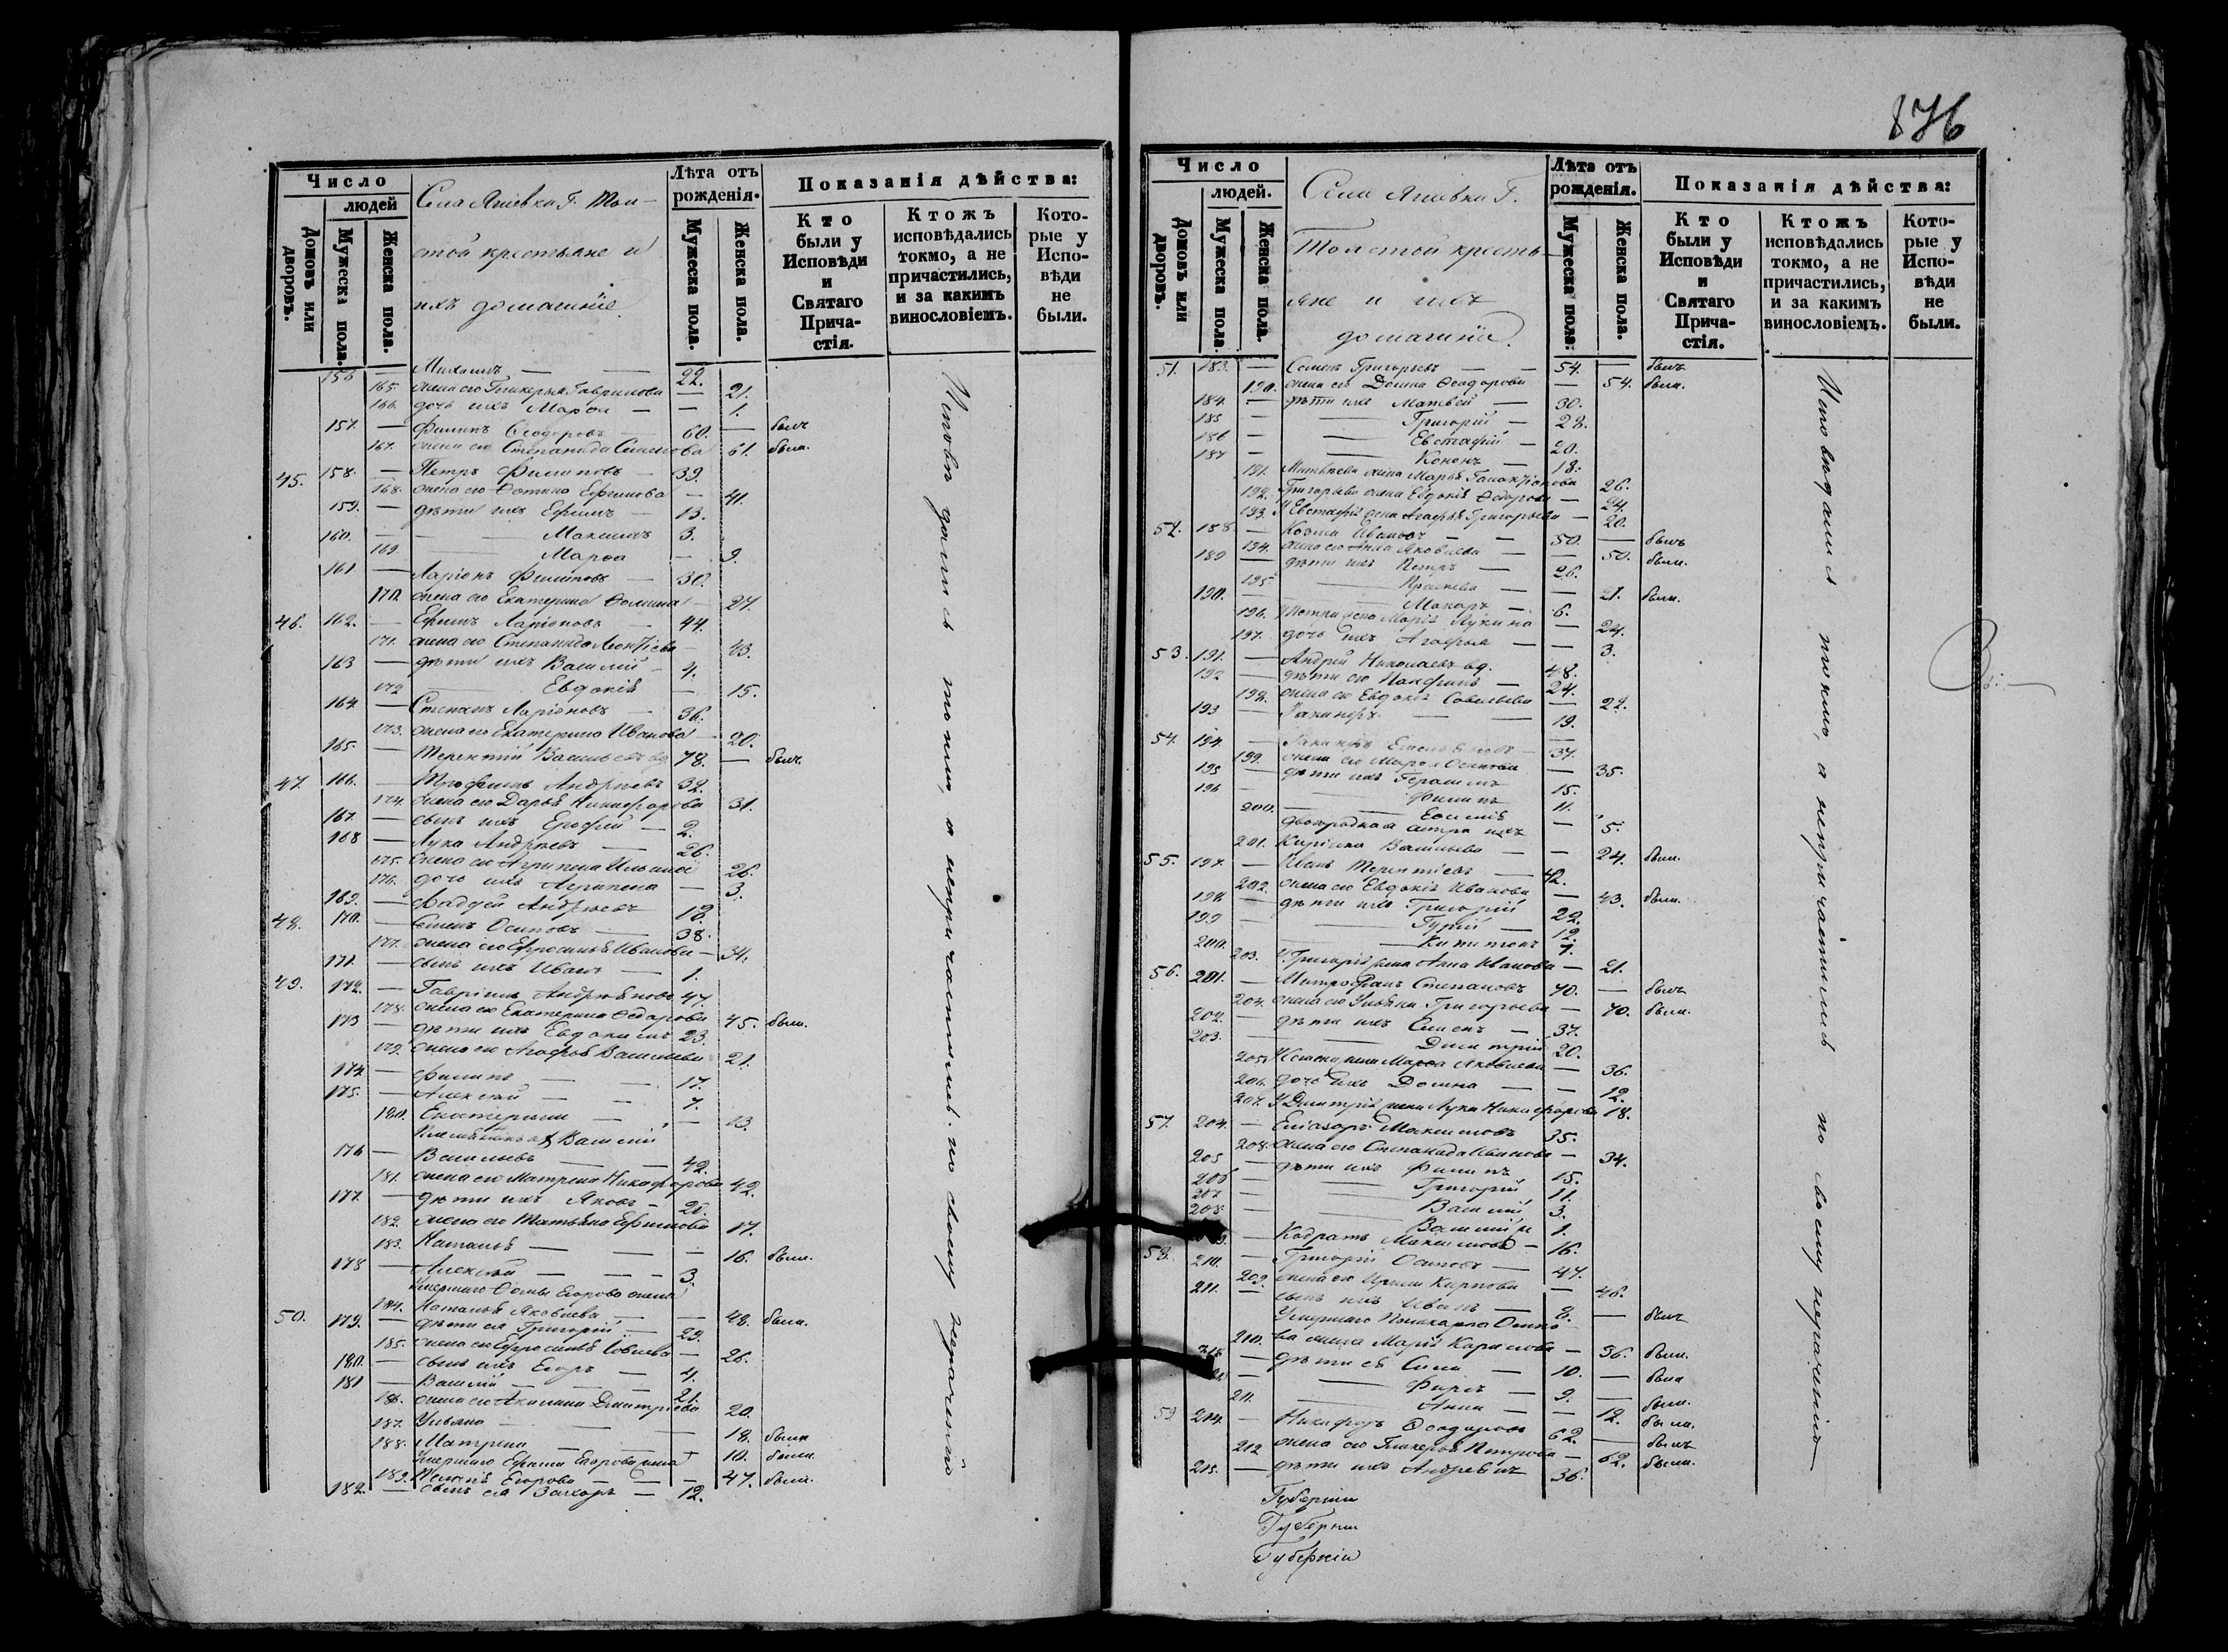 Число
людей
Домовъ или дворовъ.
Мужеска пола.
Женска пола.
Села Г. Тол-
стой крестьяне и
ихъ домашніе.
Лѣта отъ рожденія.
Мужеска пола.
Женска пола.
Показанія дѣйства:
Кто были у Исповѣди и Святаго Прича-стія.
Ктожъ исповѣдались токмо, а не причастились, и за какимъ винословіемъ.
Кото-рые у Испо-вѣди не были.
156 — Михаилъ — — 22.
165. жена его Гликерья Гаврилова — 21.
166. дочь ихъ Марѳа — — 1.
157. — Филипъ Ѳеодоровъ — 60. — былъ
167. жена его Степанида Семенова 61. была.
45. 158. — Петръ Филиповъ — 39.
168. жена его Ефимова — 41.
159. — дѣти ихъ Ефимъ — 13.
160. — — Максимъ 3.
169. Марѳа — 9.
161 — Ларіонъ Филиповъ — 30.
170. жена его Екатерина Ѳомина — 27.
46. 162. — Ефимъ Ларіоновъ — 44.
171. жена его Степанида — 43.
163 — дѣти ихъ Василій — 4.
172 Евдокія — 15.
164. — Степанъ Ларіоновъ — 36.
173. жена его Екатерина Иванова — 20.
165. — Терентій Васильевъ вд. 78. — былъ
47. 166. — Трофимъ Андреевъ 32.
174. жена его Дарья Никифорова 31.
167. — сынъ ихъ Ерофей — 2.
168 — Лука Андреевъ — 26.
175. жена его Агрипена Ильина 26.
176. дочь ихъ Агрипена — 3.
169. — Фаддей Андреевъ 18.
48. 170. — Семенъ Осиповъ — 38.
177. жена его Ефросинья Иванова — 34.
171. — сынъ ихъ Иванъ — 1.
49. 172. — Гавріилъ 47.
178. жена его Екатерина Ѳедорова 45. была.
173 — дѣти ихъ Евдокимъ 23.
179. жена его Агафья Васильева 21.
174. — Филипъ — — 17.
175. — Алексѣй — — 7.
180. Екатерина — — 13.
Василій
176 — Васильевъ — — 42.
181. жена его Матрена Никифорова 42.
177. — дѣти ихъ Яковъ — 20.
182. жена его Татьяна Ефимова 17.
183. Наталья — — — 16. была.
178 — Алексѣй — — — 3.
Умершаго Ѳомы Егорова жена
184. Наталья Яковлева — — 48. была.
50. 179. — дѣти ея Григорій — 29.
185. жена его Ефросинья — 26.
180. — сынъ ихъ Егоръ — 4.
181 — Василій — — — 21.
186. жена его Акилина Дмитріева 20.
187. Ульяна — — — 18. была
188. Матрена — — — 10. была.
Умершаго Егорова жена
189. Егорова — — 47. была.
182. — сынъ ея Захаръ — 12.
Исповѣдались токмо, а непричастились по своему нераченію
876
Число
людей.
Домовъ или дворовъ.
Мужеска пола.
Женска пола.
Села Г.
Толстой кресть-
яне и ихъ
домашніе.
Лѣта отъ рожденія.
Мужеска пола.
Женска пола.
Показанія дѣйства:
Кто были у Исповѣди и Святаго Прича-стія.
Ктожъ исповѣдались токмо, а не причастились, и за какимъ винословіемъ.
Кото-рые у Испо-вѣди не были.
51. 183. — Семенъ Григорьевъ — — 54. — былъ
190. жена его Домна Ѳеодорова — 54. была.
184. — дѣти ихъ Матвей — 30.
185 — Григорій — 28.
186 — Евстафій — 20.
187 — Кононъ — 18.
191. Матвѣева жена Марья 26.
192. Григорьева жена Евдокія Ѳедорова — 24.
193. У Евстафія жена Агафья Григорьева — 20.
52. 188. — Козма Ивановъ — — 50. — былъ
194. жена его Анна Яковлева — — 50. была.
189 — дѣти ихъ Петръ — 26.
195. — — 21. была.
190. — Макаръ — 6.
196. Петра жена Марія Лукина — 24.
197. дочь ихъ Агафья — — 3.
53. 191. — Андрей Николаевъ вд. 48.
192 — дѣти его Панфилъ — 24.
198. жена его Евдокія Савельева — 22.
193 — — 19.
54. 194. — 37.
199. жена его Марѳа Осипова — 35.
195 — дѣти ихъ Герасимъ 15.
196 — Филипъ 11.
200. — — 5.
двоюродная сестра ихъ
201. Васильева — — 24. была.
55. 197. — Иванъ Терентіевъ — 42.
202. жена его Евдокія Иванова — 43. была.
198. — дѣти ихъ Григорій 22.
199 — Гурій — 12.
200. — 7.
203. У Григорія жена Анна Иванова — 21.
56. 201. — Митрофанъ Степановъ 70. — былъ
204. жена его Ульяна Григорьева — 70. была.
202. — дѣти ихъ Семенъ — 37.
203. — Дмитрій 20.
205. У Семена жена Марѳа Яковлева — 36.
206. дочь ихъ Домна — — 12.
207. У Дмитрія жена Никифорова 18.
57. 204. — Еліазаръ Максимовъ 35.
208. жена его Степанида Иванова — 34.
205 — дѣти ихъ Филипъ 15.
206 — Григорій 11.
207 — Василій 3.
208. — Василій 1.
— Кодратъ Максимовъ — 16.
58. 210. — Григорій Осиповъ — 47.
209. жена его Карпова — 46.
211. — сынъ ихъ Иванъ — 8. — былъ
Умершаго Поликарпа Осипо-
210. ва жена Марія — 36. была.
— дѣти ея — 10. — была
— Фирсъ — 9. — была.
211. Анна — — 12. была.
59 214. — Никифоръ Ѳеодоровъ 62. — былъ
212 жена его Гликерья Петрова — 62. была.
215. — дѣти ихъ 36.
Исповѣдались токмо, а непричастились по своему нераченію
Губерніи
Губерніи
Губерніи